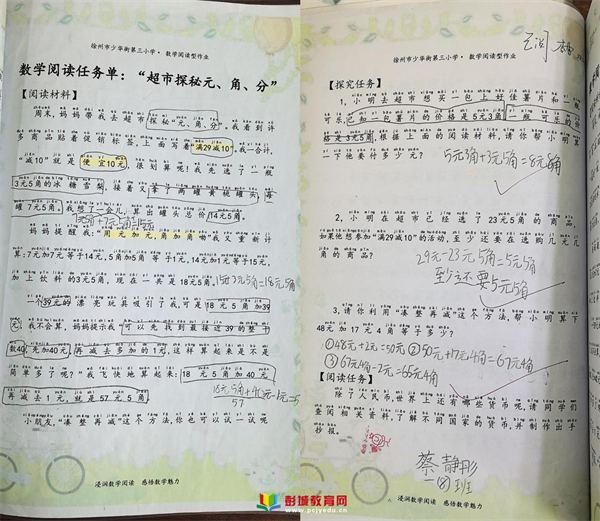 徐州市少华街第三小学·数学阅读型作业
数学阅读任务单：“超市探秘元、角、分”
【阅读材料】
周末，妈妈带我去超市探秘元、角、分。我看到许
多商品贴着促销标签，上面写着“满29减10”，我一合计，
“减10”就是便宜10元，很划算呢！我先选了一瓶
3元5角的冰糖雪梨，接着又拿了两罐黄桃罐头，每
罐7元5角，我想了一会儿，算出罐头总价14元5角。
妈妈提醒我：“用元加元，角加角呦”我又重新计
算：7元加7元等于14元，5角加5角等于1元，14元加1元等于15元，
加上饮料的3元5角，现在一共是18元5角。
15元+3元5角=18元5角
一个39元的漂亮玩具吸引了我，可是18元5角加39
元，我不会算，妈妈提示我“可以先找到最接近39的整十
数40，先加40元，再减去多加的1元，这样算起来是不是
简单多了呢？”我飞快地算起来：18元5角加40元，
再减去1元，就是57元5角。
小朋友，“凑整再减”这个方法，你也可以试一试呢
浸润数学阅读 感悟数学魅力
徐州市少华街第三小学·数学阅读型作业
【探究任务】
1，小明去超市想买一包上好佳薯片和一瓶
可乐，已知一包薯片的价格是5元3角，一瓶可乐的价
格是3元5角，根据上面的阅读材料，请你帮小明算
一下他要付多少元？
5元3角+3元5角=8元8角
2，小明在超市已经选了23元5角的商品，
如果他想参加“满29减10”的活动，至少还要在选购几元几
角的商品？
29元-23元5角=5元5角
至少还要5元5角
3，请你利用“凑整再减”这个方法，帮小明算下
48元加17元4角等于多少？
①48元+2元=50元 ②50元+17元4角=67元4角
③67元4角-2元=65元4角
【阅读任务】
除了人民币，世界上还有哪些货币呢，请同学们
查阅相关资料，了解不同国家的货币，并制作出手
抄报。
蔡静彤
一(8)班
浸润数学阅读 感悟数学魅力
彭城教育网
www.pcjyedu.cn